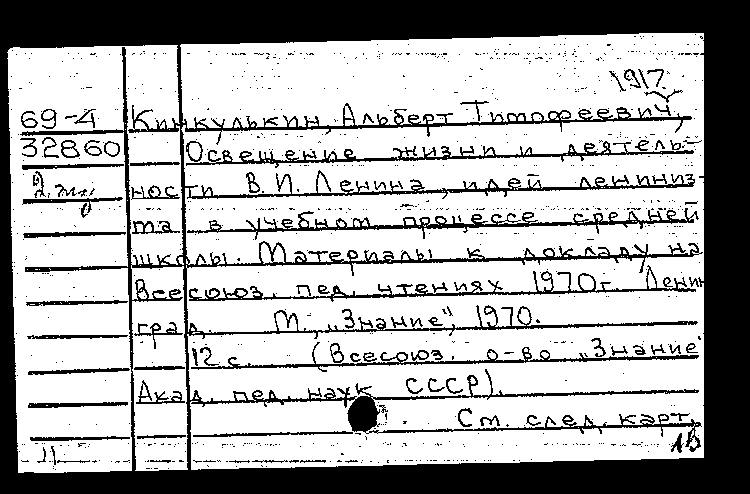 1917
69-4 Кинкулькин, Альберт Тимофеевич,
32860 Освещение жизни и деятель-
ности В.И. Ленина, идей лениниз-
ма в учебном процессе средней
школы. Материалы к докладу на
Всесоюз. пед. чтениях 1970г. Ленин
град. М., „Знание", 1970.
12 с. (Всесоюз. о-во „Знание
Акад. пед. наук СССР).
См. след. карт.